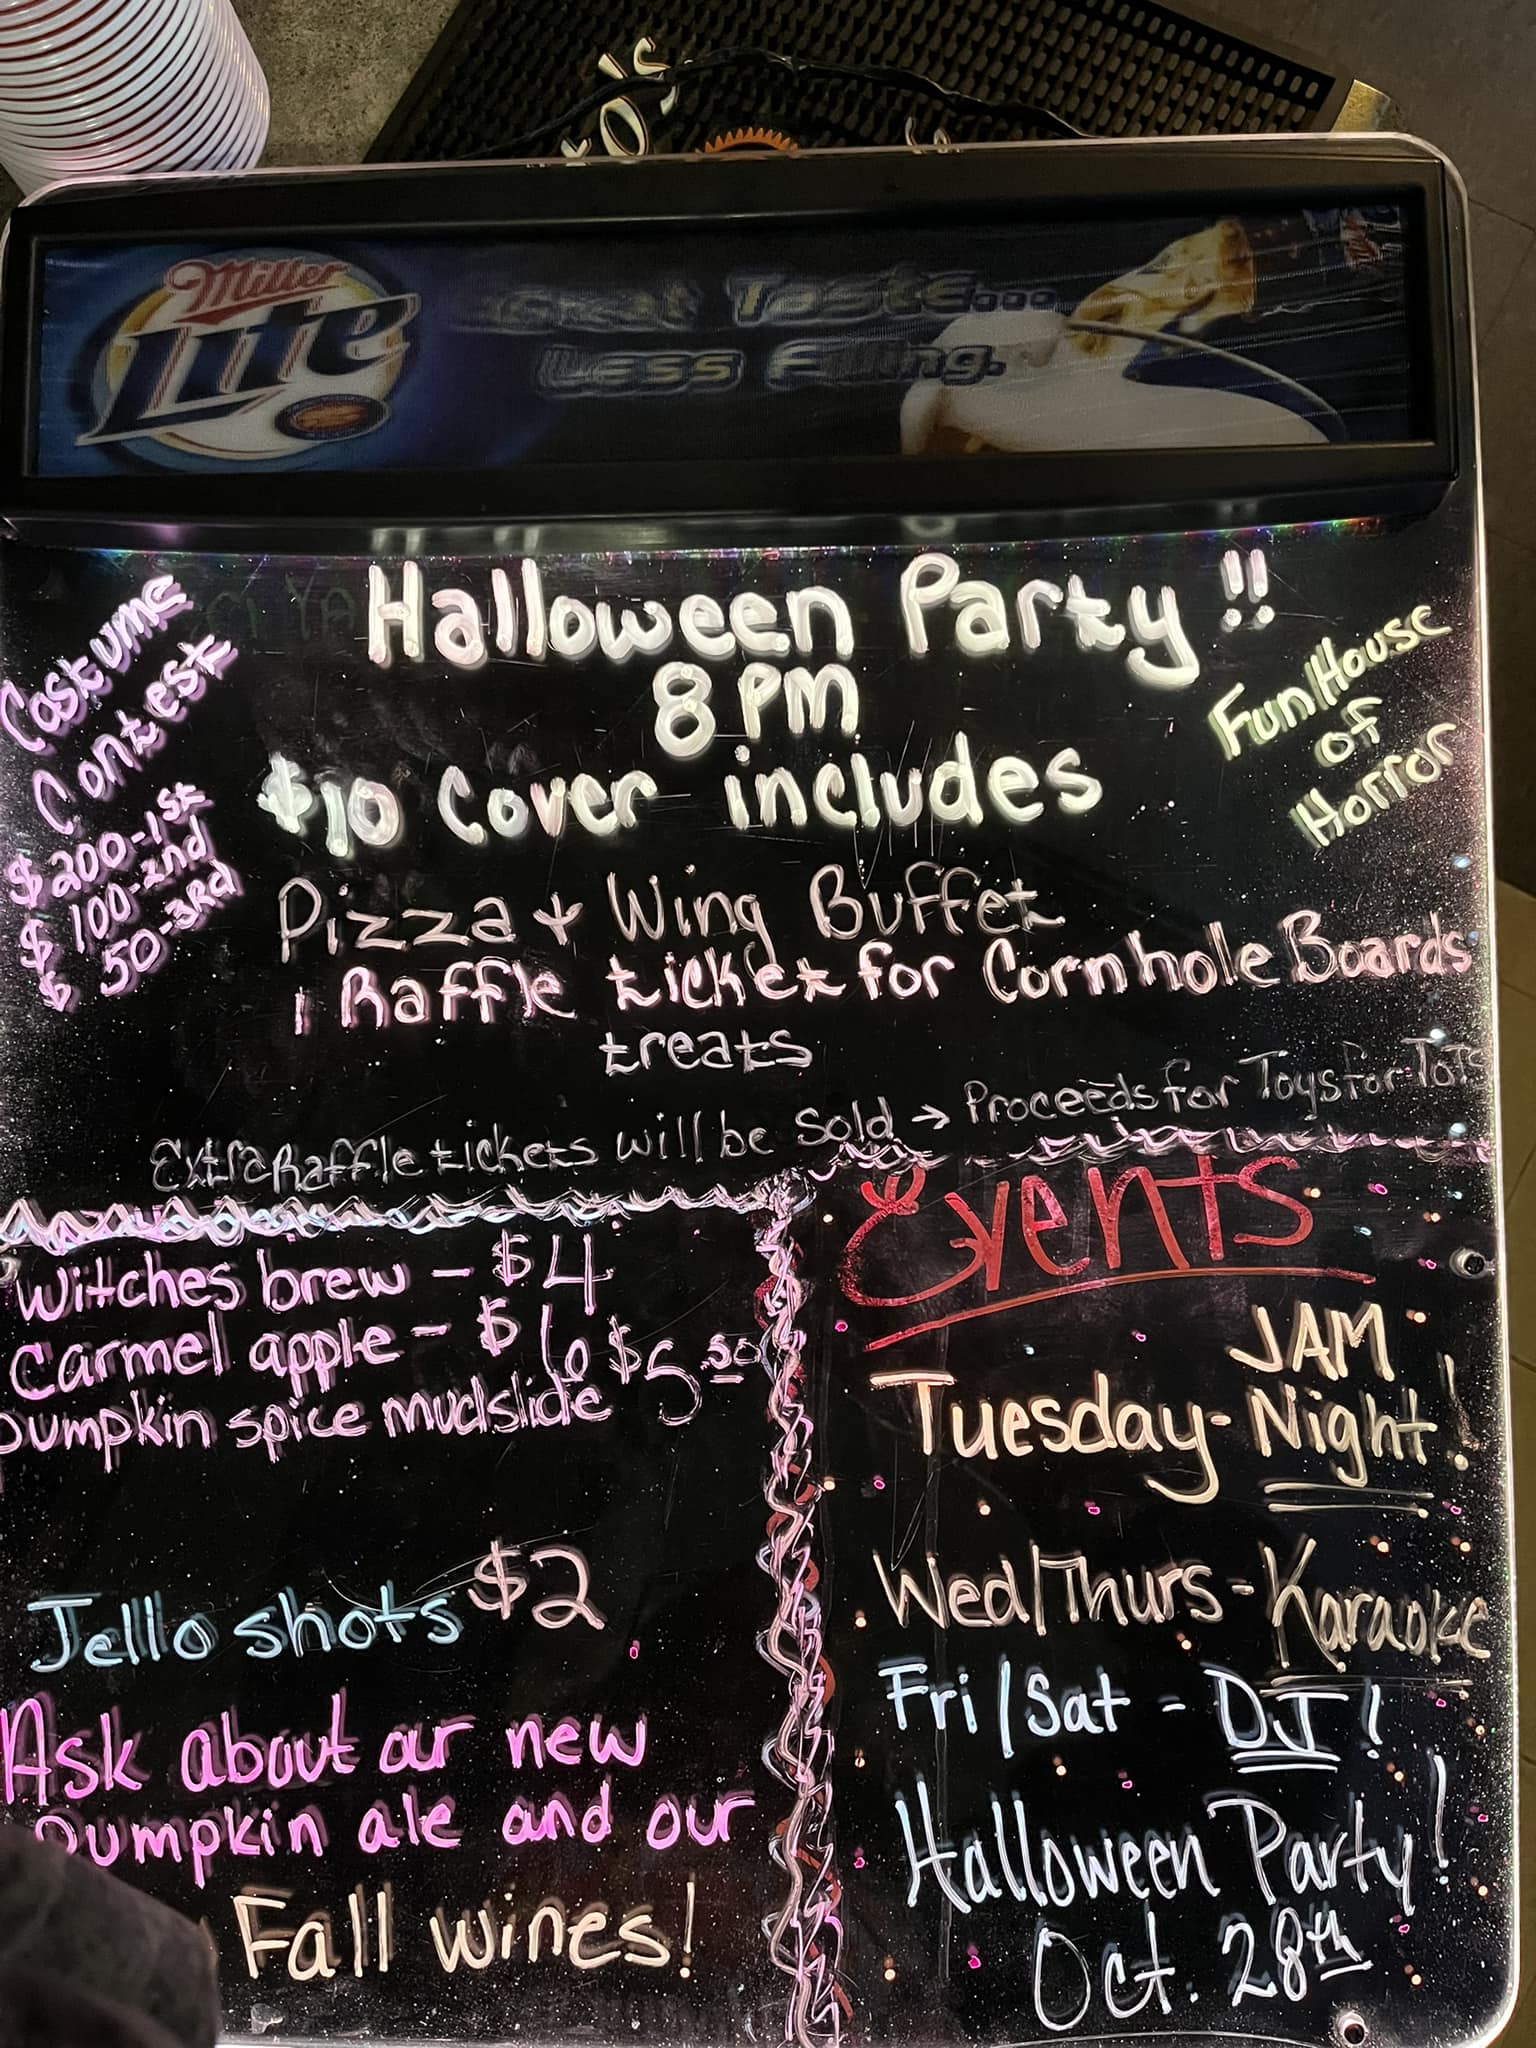 Miller
Lite
Great Taste...
Less Filling.
Halloween Party!!
8 PM
$10 Cover includes
Pizza + Wing Buffet
1 Raffle ticket for Cornhole Boards
treats
Extra Raffle tickets will be Sold → Proceeds for Toys for Tots
Costume
Contest
$200-1st
$100-2nd
$50-3rd
Fun House
of
Horror
Witches brew - $4
Carmel apple - $6
pumpkin spice mudslide $5.50
Jello shots $2
Ask about our new
pumpkin ale and our
Fall wines!
Events
JAM
Tuesday - Night!
Wed/Thurs - Karaoke
Fri/Sat - DJ!
Halloween Party!
Oct. 28th